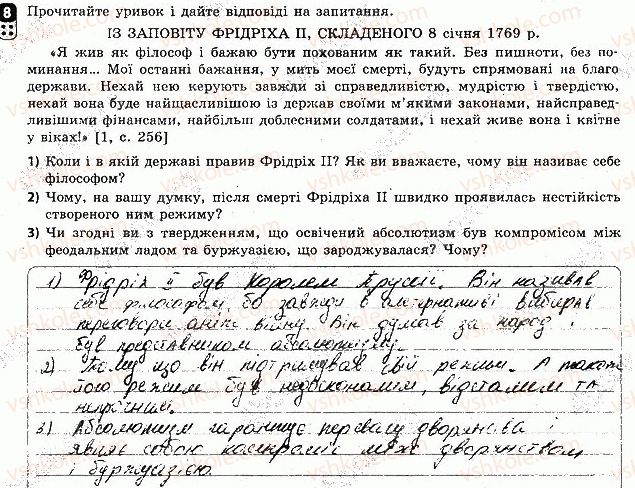 8 Прочитайте уривок і дайте відповіді на запитання.
ІЗ ЗАПОВІТУ ФРІДРІХА ІІ, СКЛАДЕНОГО 8 січня 1769 р.
«Я жив як філософ і бажаю бути похованим як такий. Без пишноти, без по-
минання... Мої останні бажання, у мить моєї смерті, будуть спрямовані на благо
держави. Нехай нею керують завжди зі справедливістю, мудрістю і твердістю,
нехай вона буде найщасливішою із держав своїми м'якими законами, найсправед-
ливішими фінансами, найбільш доблесними солдатами, і нехай живе вона і квітне
у віках!» [1, с. 256]
1) Коли і в якій державі правив Фрідріх ІІ? Як ви вважаєте, чому він називає себе
філософом?
2) Чому, на вашу думку, після смерті Фрідріха ІІ швидко проявилась нестійкість
створеного ним режиму?
3) Чи згодні ви з твердженням, що освічений абсолютизм був компромісом між
феодальним ладом та буржуазією, що зароджувалася? Чому?
1) Фрідріх ІІ був Королем Прусії. Він називав
себе філософом, бо завжди в альтернативі вибирав
переговори аніж війну. Він думав за народ,
був представником абсолютизму.
2) Тому що він підтримував свій режим. А також
його режим був недосконалим, відсталим та
3) Абсолютизм гарантує перевагу дворянства і
являє собою компроміс між дворянством
і буржуазією